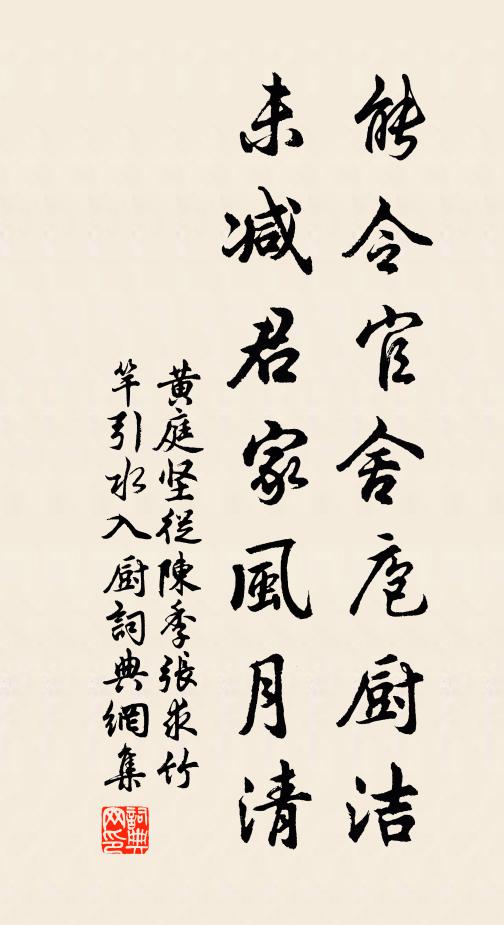 能令官舍庖厨洁
未减君家風月清
黄庭坚從陳季張求竹
竿引水入厨詞典網集
詞典
网印